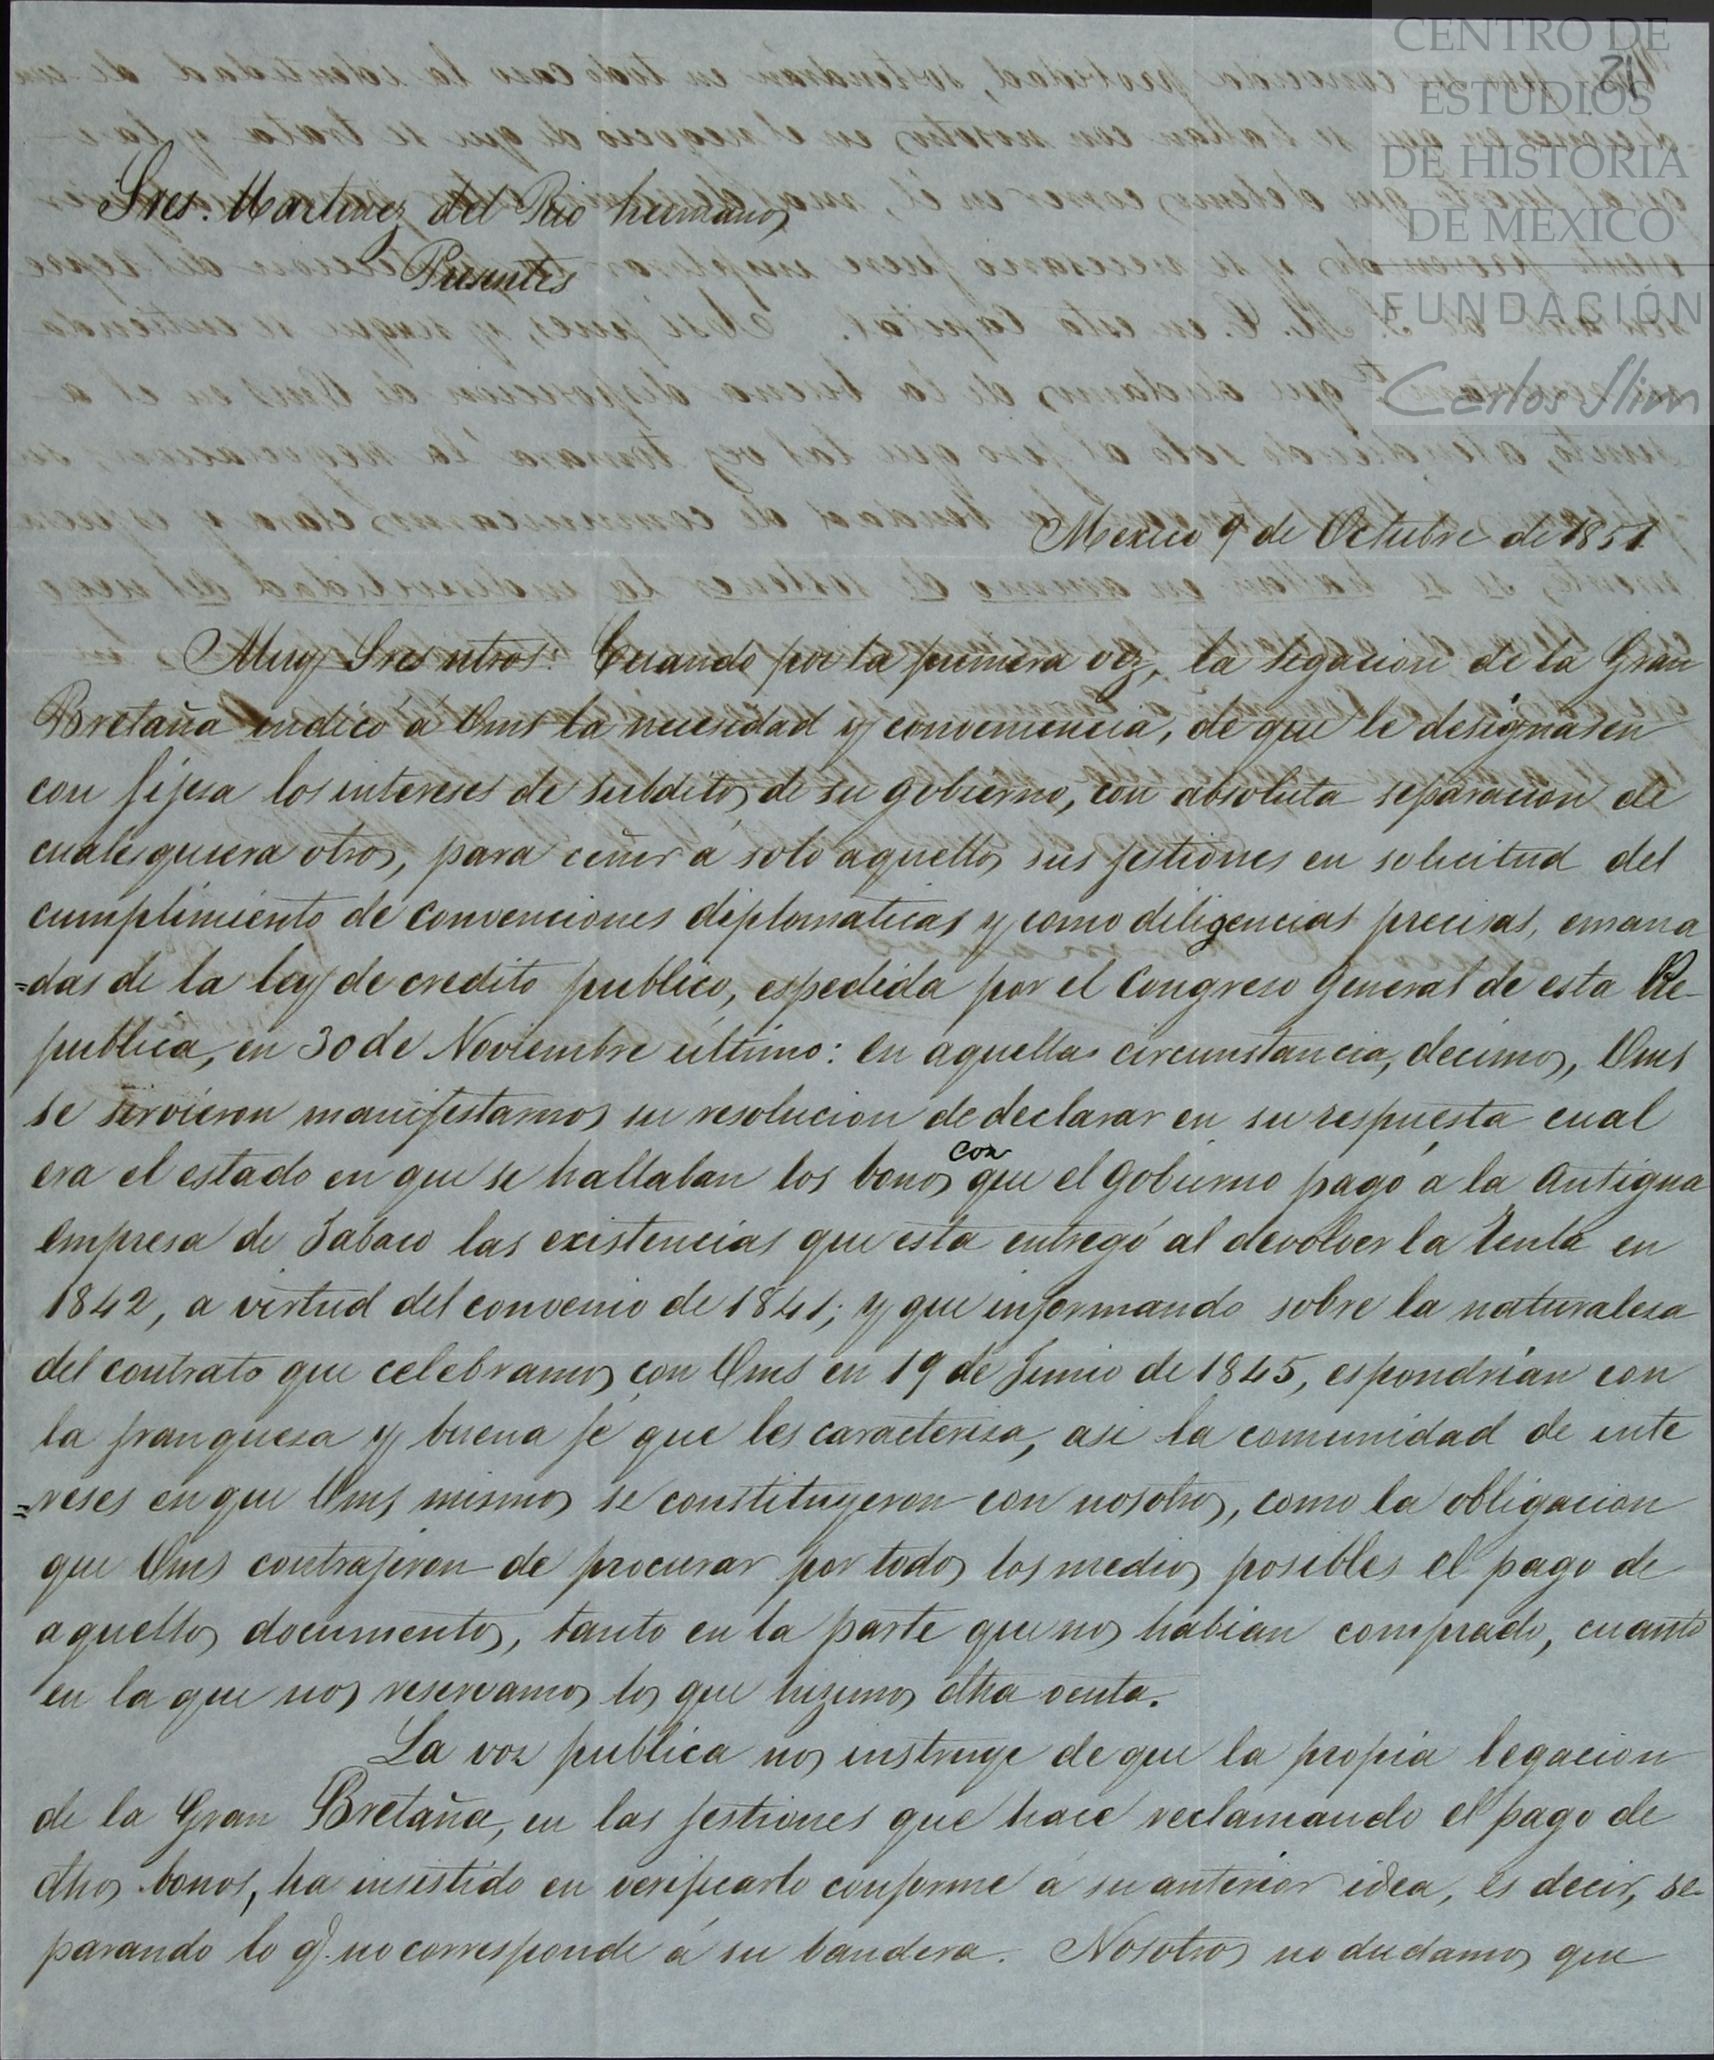 CENTRO DE
ESTUDIOS
DE HISTORIA
DE MEXICO
FUNDACIÓN
Carlos Slim
21
Sres. Martinez del Rio hermanos
Presentes
Mexico 9 de Octubre de 1851
Muy Sres ntros: Cuando por la primera vez, la legacion de la Gran
Bretaña indicó á Vms la necesidad y conveniencia, de que le designasen
con fijesa los intereses de subditos de su gobierno, con absoluta separacion de
cualesquiera otros, para ceñir á solo aquellos sus jestiones en solicitud del
cumplimiento de convenciones diplomaticas y como diligencias precisas, emana
=das de la ley de credito publico, espedida por el Congreso General de esta Re-
publica, en 30 de Noviembre último: en aquella circunstancia, decimos, Vms
se sirvieron manifestarnos su resolucion de declarar en su respuesta cual
era el estado en que se hallaban los bonos con que el Gobierno pagó a la Antigua
Empresa de Tabaco las existencias que esta entregó al devolver la renta en
1842, a virtud del convenio de 1841; y que informando sobre la naturalesa
del contrato que celebramos con Vms en 19 de Junio de 1845, espondrían con
la franquesa y buena fé que les caracterisa, asi la comunidad de inte
=reses en que Vms mismos se constituyeron con nosotros, como la obligacion
que Vms contrajeron de procurar por todos los medios posibles el pago de
aquellos documentos, tanto en la parte que nos habian comprado, cuanto
en la que nos reservamos los que hizimos dha venta.
La voz publica nos instruye de que la propia legacion
de la Gran Bretaña, en las jestiones que hace reclamando el pago de
dhos bonos, ha insistido en verificarlo conforme á su anterior idea, es decir, se-
parando lo q. no corresponde á su bandera. Nosotros no dudamos que